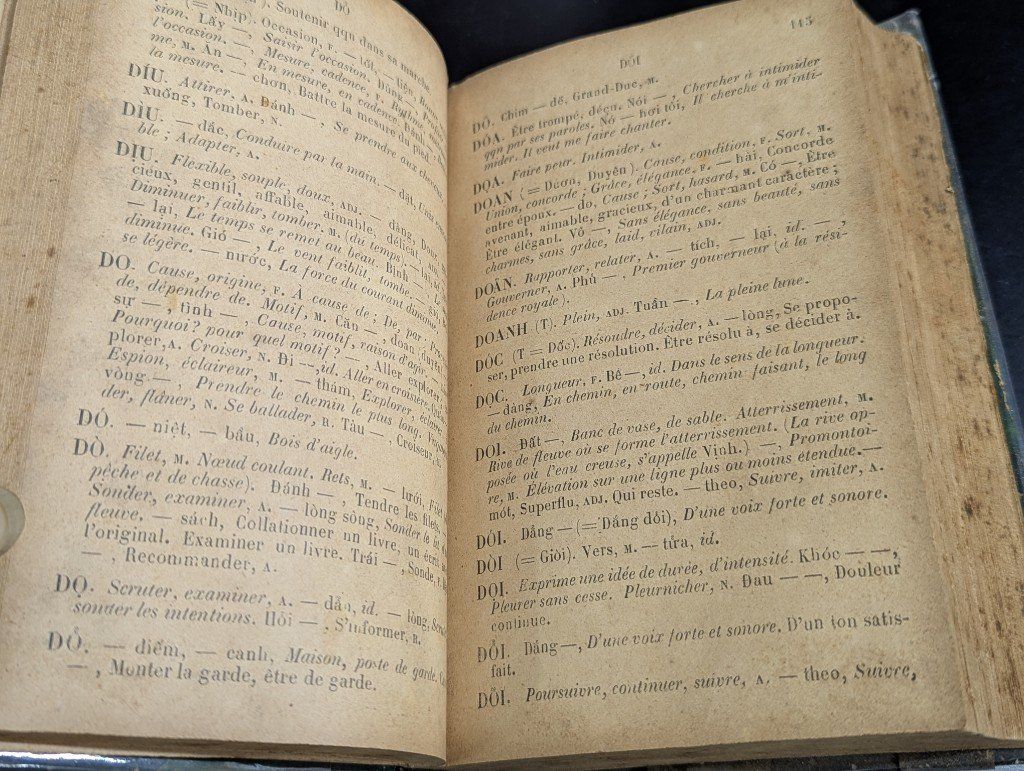 DỌ
). Soutenir qqn dans sa marche
(= Nhịp). Occasion, F. — tốt,
sion. Lấy —, Saisir l'occasion.
l'occasion. —, Mesure, cadence, F.
me, M. Ăn —, En mesure, en cadence. Đánh
la mesure. — chơn, Battre la mesure du pied.
DÍU. Attirer. A. Đánh —, Se prendre aux cheveux
xuống, Tomber, N.
DÌU. — dắc, Conduire par la main. — dặt,
ble ; Adapter, A.
DỊU. Flexible, souple, doux, ADJ. — dàng, Doux,
cieux, gentil, affable, aimable, délicat,
Diminuer, faiblir, tomber. M. (du temps).
— lại, Le temps se remet au beau. Bịnh — lại,
diminue. Gió —, Le vent faiblit, tombe.
se légère. — nước, La force du courant diminue.
DO. Cause, origine, F. À cause de ; De, par ;
de, dépendre de. Motif, M. Căn —, — đoan
sự —, tình —, Cause, motif, raison d'agir.
Pourquoi? pour quel motif? —, Aller explorer,
plorer, A. Croiser, N. Đi —, id. Aller en croisière.
Espion, éclaireur, M. — thám, Explorer, éclairer
vòng —, Prendre le chemin le plus long.
der, flâner, N. Se ballader, R. Tàu —, Croiseur, M.
DÓ. — niệt, — bầu, Bois d'aigle.
DÒ. Filet, M. Nœud coulant. Rets, M. — lưới,
pêche et de chasse). Đánh —, Tendre les filets.
Sonder, examiner, A. — lòng sông, Sonder le lit
fleuve. — sách, Collationner un livre, un écrit
l'original. Examiner un livre. Trái —, Sonde, F.
—, Recommander, A.
DỌ. Scruter, examiner, A. — dẫn, id. — lòng,
sonder les intentions. Hỏi —, S'informer, R.
DỎ. — điếm, — canh, Maison, poste de garde.
—, Monter la garde, être de garde.
DỎI
115
DÕ. Chim — dẽ, Grand-Duc, M.
DÓA. Être trompé, déçu. Nói —, Chercher à intimider
qqn par ses paroles. Nó — hơi tôi, Il cherche à m'inti-
mider. Il veut me faire chanter.
DỌA. Faire peur. Intimider, A.
DOAN (= Dươn, Duyên). Cause, condition, F. Sort, M.
Union, concorde ; Grâce, élégance, F. — hài, Concorde
entre époux. — do, Cause ; Sort, hasard, M. Có —, Être
avenant, aimable, gracieux, d'un charmant caractère ;
Être élégant. Vô —, Sans élégance, sans beauté, sans
charmes, sans grâce, laid, vilain, ADJ.
DOÃN. Rapporter, relater, A. — tích, — lại, id. —,
Gouverner, A. Phủ —, Premier gouverneur (à la rési-
dence royale).
DOANH (T). Plein, ADJ. Tuần —, La pleine lune.
DỐC (T = Dốc). Résoudre, décider, A. — lòng, Se propo-
ser, prendre une résolution. Être résolu à, se décider à.
DỌC. Longueur, F. Bề —, id. Dans le sens de la longueur.
— đàng, En chemin, en route, chemin faisant, le long
du chemin.
DOI. Đất —, Banc de vase, de sable. Atterrissement, M.
Rive de fleuve où se forme l'atterrissement. (La rive op-
posée où l'eau creuse, s'appelle Vịnh.) —, Promontoi-
re, M. Élévation sur une ligne plus ou moins étendue. —
mót, Superflu, ADJ. Qui reste. — theo, Suivre, imiter, A.
DÓI. Dẳng — (= Dẳng dỏi), D'une voix forte et sonore.
DÒI (= Giòi). Vers, M. — tửa, id.
DỌI. Exprime une idée de durée, d'intensité. Khóc — —,
Pleurer sans cesse. Pleurnicher, N. Đau — —, Douleur
continue.
DỎI. Dắng —, D'une voix forte et sonore. D'un ton satis-
fait.
DÕI. Poursuivre, continuer, suivre, A. — theo, Suivre,